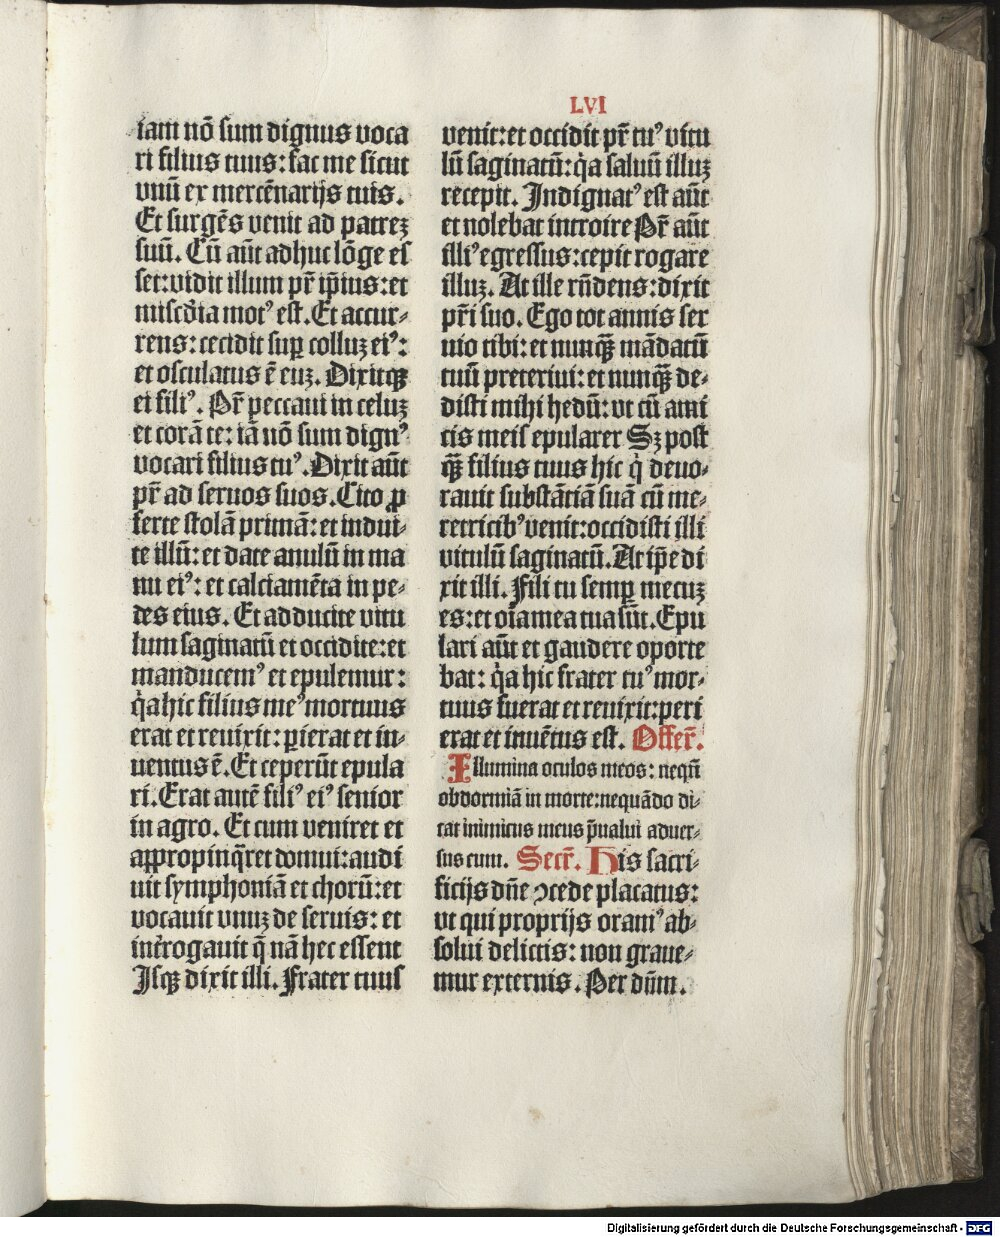 LVI
iam nõ sum dignus voca
ri filius tuus: fac me sicut
vnũ ex mercẽnarijs tuis.
Et surgẽs venit ad patreꝫ
suũ. Cũ aũt adhuc lõge es
set: vidit illum pr̃ ip̃ius: et
misc̃dia motꝰ est. Et accur-
rens: cecidit suꝑ colluꝫ eiꝰ:
et osculatus ẽ euꝫ. Dixitqꝫ
ei filiꝰ. Pr̃ peccaui in celuꝫ
et corã te: iã nõ sum dignꝰ
vocari filius tuꝰ. Dixit aũt
pr̃ ad seruos suos. Cito ꝓ
ferte stolã primã: et indui-
te illũ: et date anulũ in ma
nu eiꝰ: et calciamẽta in pe-
des eius. Et adducite vitu
lum saginatũ et occidite: et
manducemꝰ et epulemur:
q̇a hic filius meꝰ mortuus
erat et reuixit: ꝑierat et in-
uentus ẽ. Et ceperũt epula
ri. Erat autẽ filiꝰ eiꝰ senior
in agro. Et cum veniret et
aꝓpropinq̃ret domui: audi
uit symphoniã et chorũ: et
vocauit vnuꝫ de seruis: et
int̃rogauit q̃ nã hec essent
Isqꝫ dixit illi. Frater tuus
venit: et occidit pr̃ tuꝰ vitu
lũ saginatũ: q̇a saluũ illuꝫ
recepit. Indignatꝰ est aũt
et nolebat introire Pr̃ aũt
illiꝰ egressus: cepit rogare
illuꝫ. At ille rñdens: dixit
pr̃i suo. Ego tot annis ser
uio tibi: et nunqꝫ̃ mãdatũ
tuũ preteriui: et nunqꝫ̃ de-
disti mihi hedũ: vt cũ ami
cis meis epularer Sꝫ post
qꝫ̃ filius tuus hic q̇ deuo-
rauit substãtiã suã cũ me-
retricibꝰ venit: occidisti illi
vitulũ saginatũ. At ip̃e di
xit illi. Fili tu semꝑ mecuꝫ
es: et oĩa mea tua sũt. Epu
lari aũt et gaudere oporte
bat: q̇a hic frater tuꝰ mor-
tuus fuerat et reuixit: peri
erat et inuẽtus est. Offer̃.
Illumina oculos meos: nequñ
obdormiã in morte: nequãdo di-
cat inimicus meus p̃ualui aduer-
sus eum. Secr̃. His sacri-
ficijs dñe ↄcede placatus:
vt qui proprijs oramꝰ ab-
solui delictis: non graue-
mur externis. Per dũm.
Digitalisierung gefördert durch die Deutsche Forschungsgemeinschaft - DFG